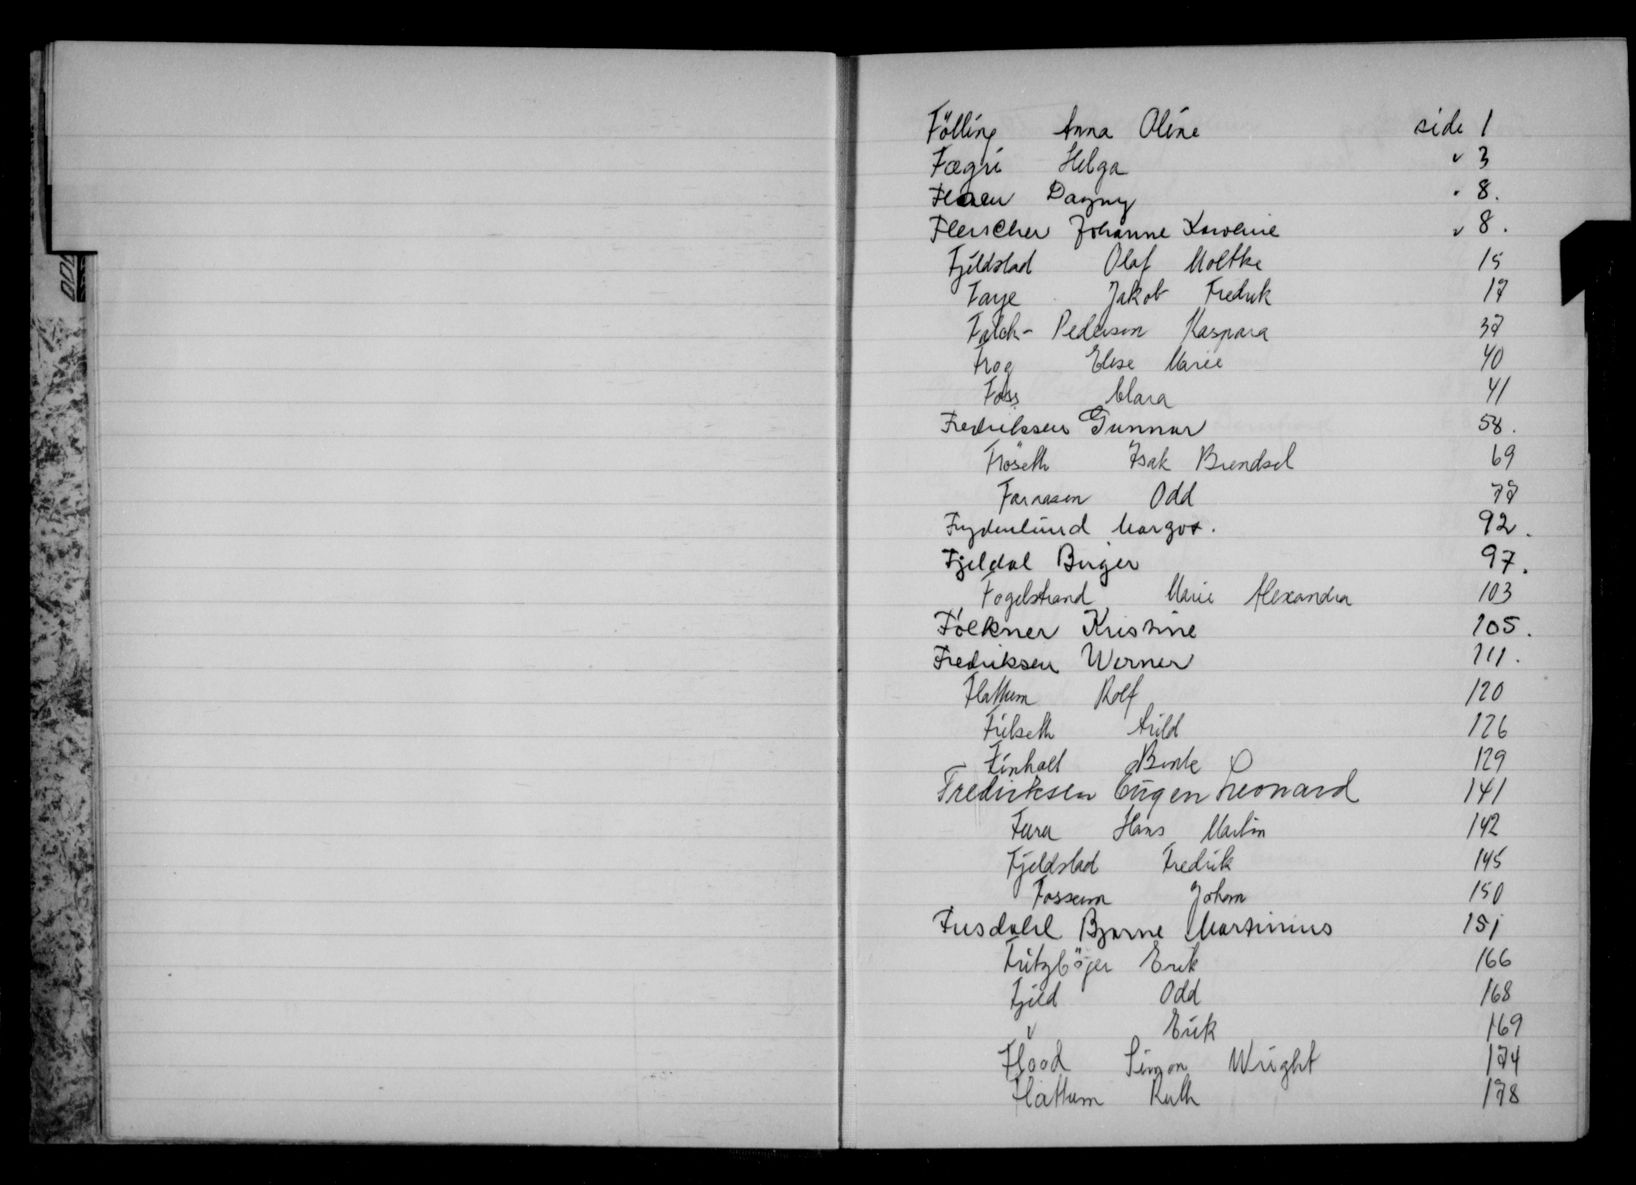 Fölling Anna Oline side 1
Fægri Helga " 3
Floen Dagny " 8.
Fleischer Johanne Karoline " 8.
Fjeldstad Olaf Moltke 15
Faye Jakob Fredrik 17
Falch-Pedersen Kaspara 37
Frog Elise Marie 40
Foss Clara 41
Fredriksen Gunnar 58.
Fröseth Isak Brendsel 69
Farnasen Odd 77
Frydenlund Margot. 92.
Fjeldal Birger 97.
Fogelstrand Marie Alexandra 103
Fölkner Kristine 105.
Fredriksen Werner 111.
Flattum Rolf 120
Frilseth Arild 126
Finholt Bente 129
Fredriksen Eugen Leonard 141
Fura Hans Martin 142
Fjeldstad Fredrik 145
Fossum Johan 150
Fusdahl Bjarne Martinius 151
Fritzböger Erik 166
Fjeld Odd 168
" Erik 169
Flood Simon Wright 174
Flattum Ruth 178